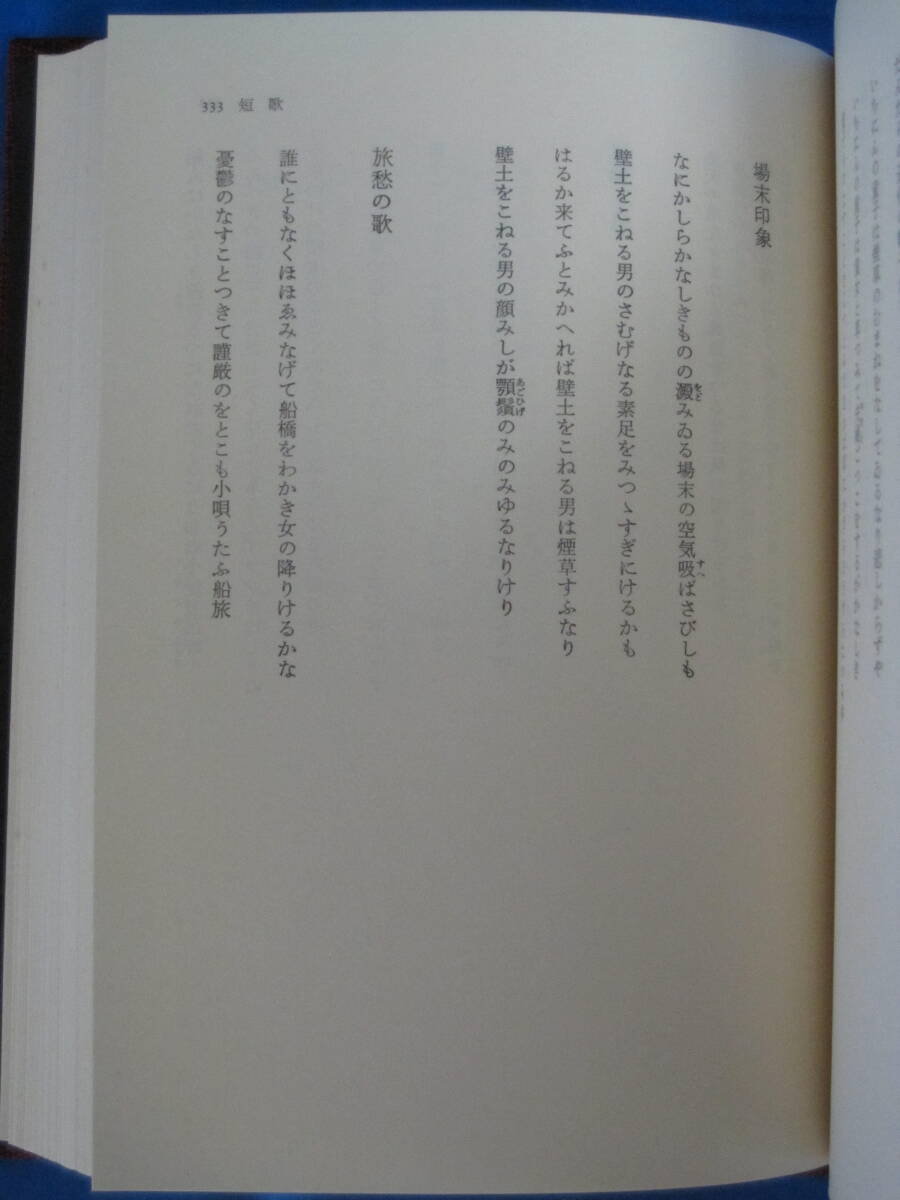 333 短歌
場末印象
なにかしらかなしきものの澱みゐる場末の空気吸ばさびしも
壁土をこねる男のさむげなる素足をみつゝすぎにけるかも
はるか来てふとみかへれば壁土をこねる男は煙草すふなり
壁土をこねる男の顔みしが顎鬚あごひげのみのみゆるなりけり
旅愁の歌
誰にともなくほほゑみなげて船橋をわかき女の降りけるかな
憂鬱のなすことつきて謹厳のをとこも小唄うたふ船旅